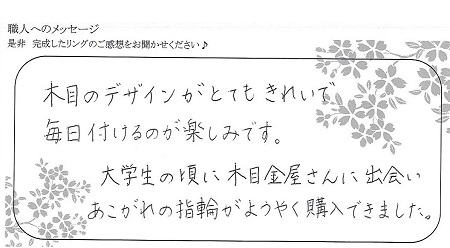 職人へのメッセージ
是非 完成したリングのご感想をお聞かせください♪
木目のデザインがとてもきれいで
毎日付けるのが楽しみです。
大学生の頃に木目金屋さんに出会い
あこがれの指輪がようやく購入できました。